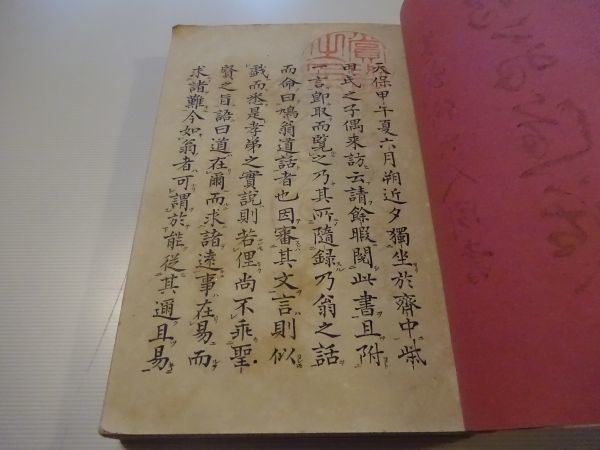 天保甲午夏六月朔近夕獨坐於齊中柴
田氏之子偶來訪云請餘暇閲此書且附
一言卽取而覧之乃其所隨録乃翁之話
而命曰鳩翁道話者也因審其文言則似
戲而悉是孝弟之實説則若俚尚不乖聖
賢之旨語曰道在爾而求諸遠事在易而
求諸難今如翁者可謂於能從其邇且易